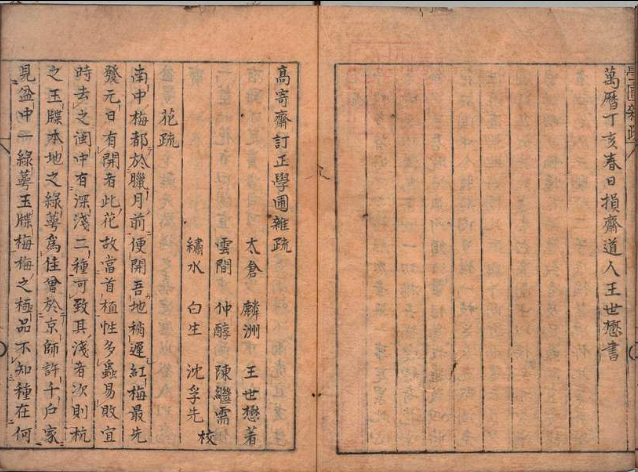 萬曆丁亥春日損齋道人王世懋書
高寄齋訂正學圃雜疏
太倉 麟洲 王世懋著
雲間 仲醇 陳繼儒
繡水 白生 沈孚先 校
花疏
南中梅都於臘月前便開吾地稍遲紅梅最先
發元日有開者此花故當首植性多蟲易敗宜
時去之閩中有深淺二種可致其淺者次則杭
之玉牒本地之綠萼爲佳曾於京師許千戶家
見盆中一綠萼玉牒梅梅之極品不知種在何